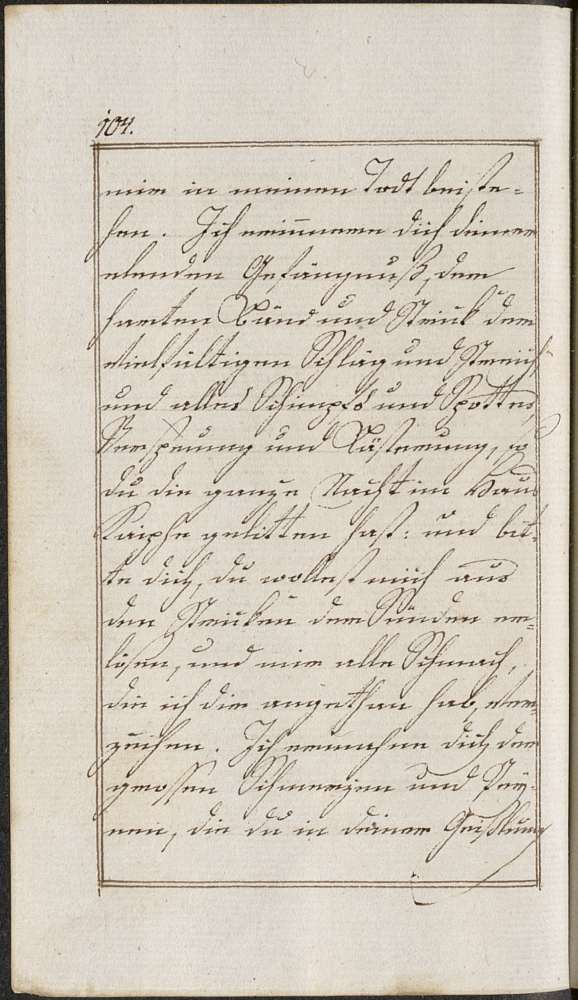 104.
mir in meinen Todt beiste-
hen. Ich erinnere dich deiner
elenden Gefängnuß, der
harten Bänd und Strick der
vielfältigen Schläg und Streich
und alles Schimpfs und Spottes,
Verspeiung und Lästerung, so
du die ganze Nacht im Haus
Kaiphe gelitten hast: und bit-
te dich, du wollest mich aus
den Stricken der Sünden er-
lösen, und mir alle Schmach,
die ich dir angethan hab, ver-
zeihen. Ich ermahne dich der
grossen Schmerzen und Pei-
nen, die du in deiner Geißlung